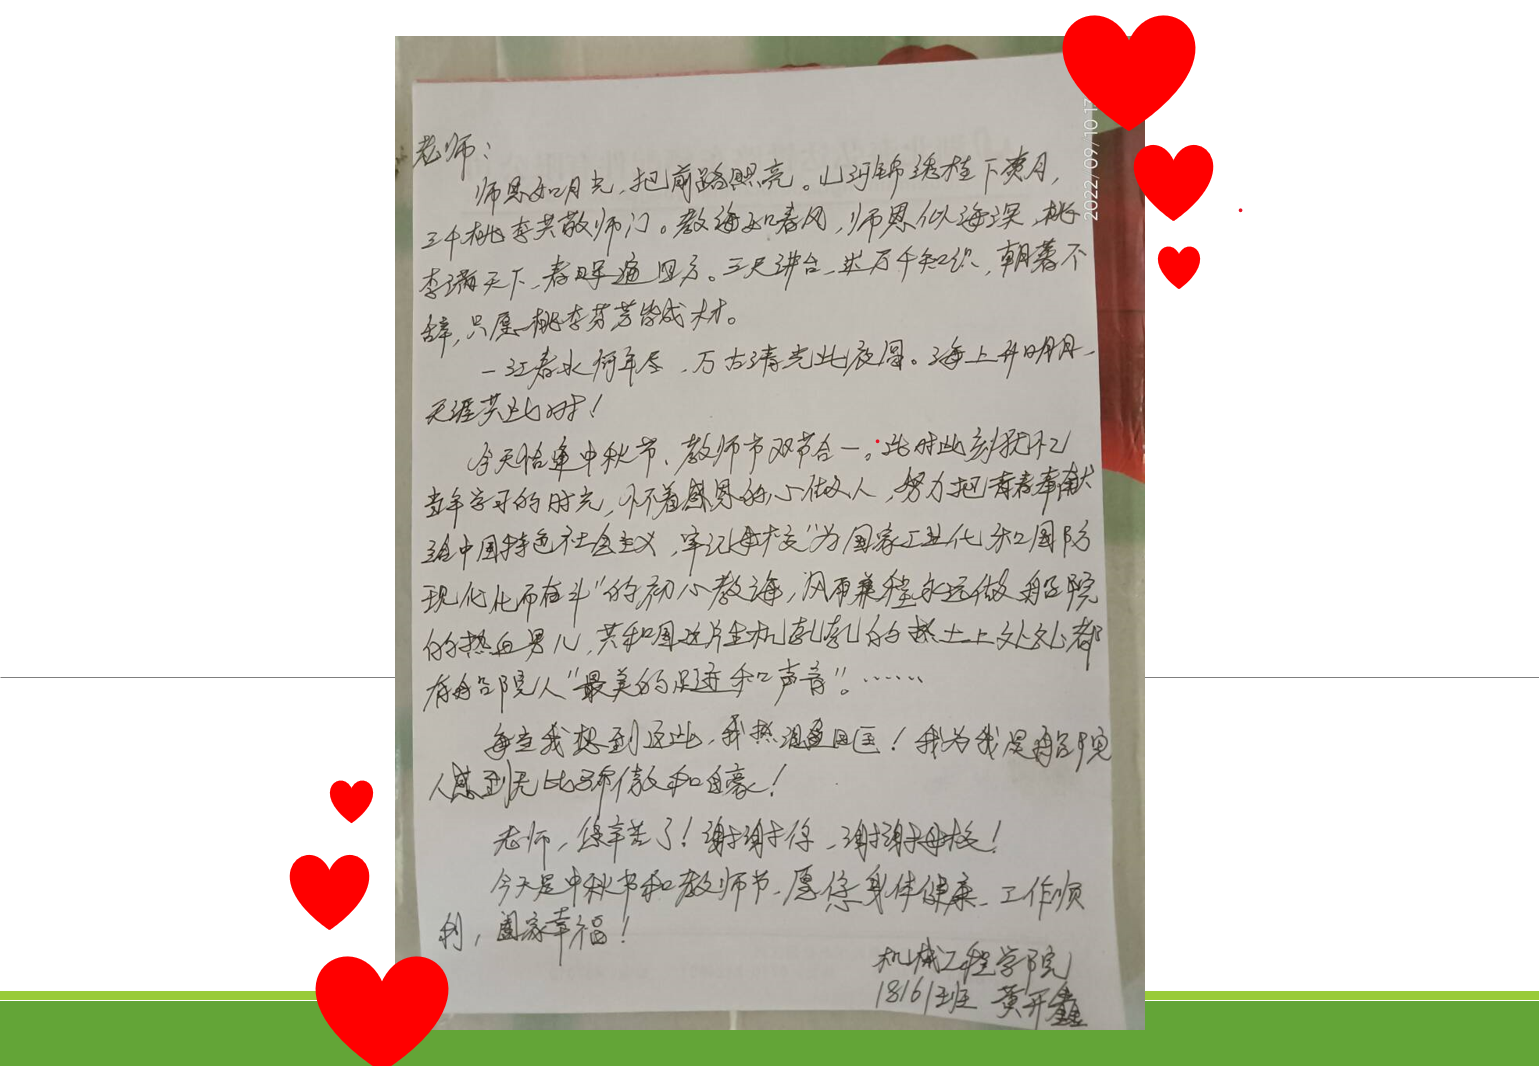 老师：
师恩如月光，把前路照亮。山河锦绣桂下爽月，
三千桃李共敬师门。教诲如春风，师恩似海深，桃
李满天下，春晖遍四方。三尺讲台，洪万千知识，朝暮不
辞，只愿桃李芬芳皆成才。
一江春水何年尽，万古清光此夜圆。海上升明月，
天涯共此时！
今天恰逢中秋节、教师节双节合一。此时此刻犹忆
当年学习的时光，怀着感恩的心做人，努力把青春奉献
给中国特色社会主义，牢记母校“为国家工业化和国防
现代化而奋斗”的初心教诲，风雨兼程永远做船院
的热血男儿，共和国这片生机勃勃的热土上处处都
有船院人“最美的足迹和声音”。……
每当我想到这些，我热泪盈眶！我为我是船院
人感到无比骄傲和自豪！
老师，您辛苦了！谢谢你，谢谢母校！
今天是中秋节和教师节，愿您身体健康、工作顺
利，阖家幸福！
机械工程学院
18161班 黄开鑫
2022/09/10 17